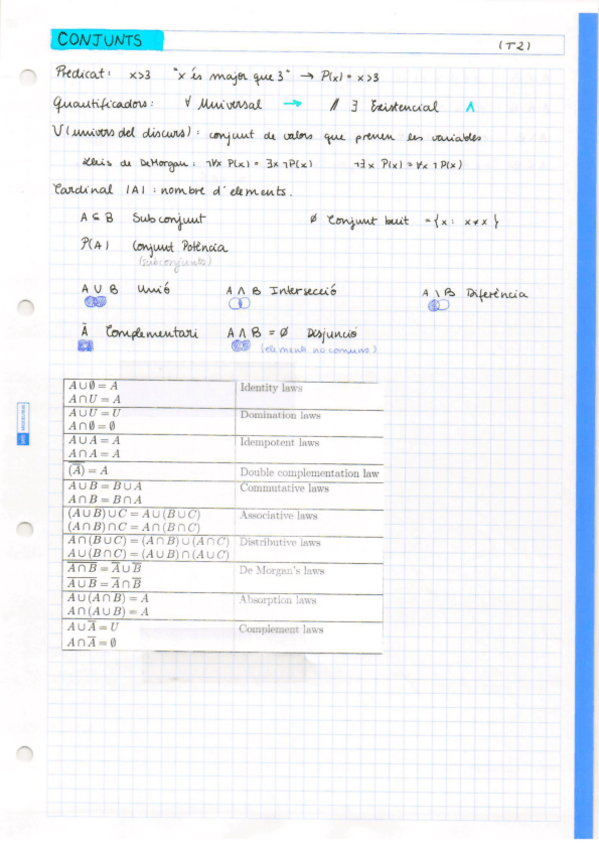 CONJUNTS (T2)
Predicat: x>3 "x és major que 3" → P(x) = x>3
Quantificadors: ∀ Universal → // ∃ Existencial ∧
U (univers del discurs): conjunt de valors que prenen les variables
Lleis de DeMorgan: ¬∀x P(x) = ∃x ¬P(x) ¬∃x P(x) = ∀x ¬P(x)
Cardinal |A| : nombre d'elements.
A ⊆ B Subconjunt ∅ Conjunt buit = {x : x≠x}
P(A) Conjunt Potència
(subconjunts)
A ∪ B Unió A ∧ B Intersecció A \ B Diferència
Ā Complementari A ∧ B = ∅ Disjunció
(elements no comuns)
A ∪ ∅ = A Identity laws
A ∩ U = A
A ∪ U = U Domination laws
A ∩ ∅ = ∅
A ∪ A = A Idempotent laws
A ∩ A = A
(A̅)̅ = A Double complementation law
A ∪ B = B ∪ A Commutative laws
A ∩ B = B ∩ A
(A ∪ B) ∪ C = A ∪ (B ∪ C) Associative laws
(A ∩ B) ∩ C = A ∩ (B ∩ C)
A ∩ (B ∪ C) = (A ∩ B) ∪ (A ∩ C) Distributive laws
A ∪ (B ∩ C) = (A ∪ B) ∩ (A ∪ C)
A̅ ̅∩̅ ̅B̅ = A̅ ∪ B̅ De Morgan's laws
A̅ ̅∪̅ ̅B̅ = A̅ ∩ B̅
A ∪ (A ∩ B) = A Absorption laws
A ∩ (A ∪ B) = A
A ∪ A̅ = U Complement laws
A ∩ A̅ = ∅